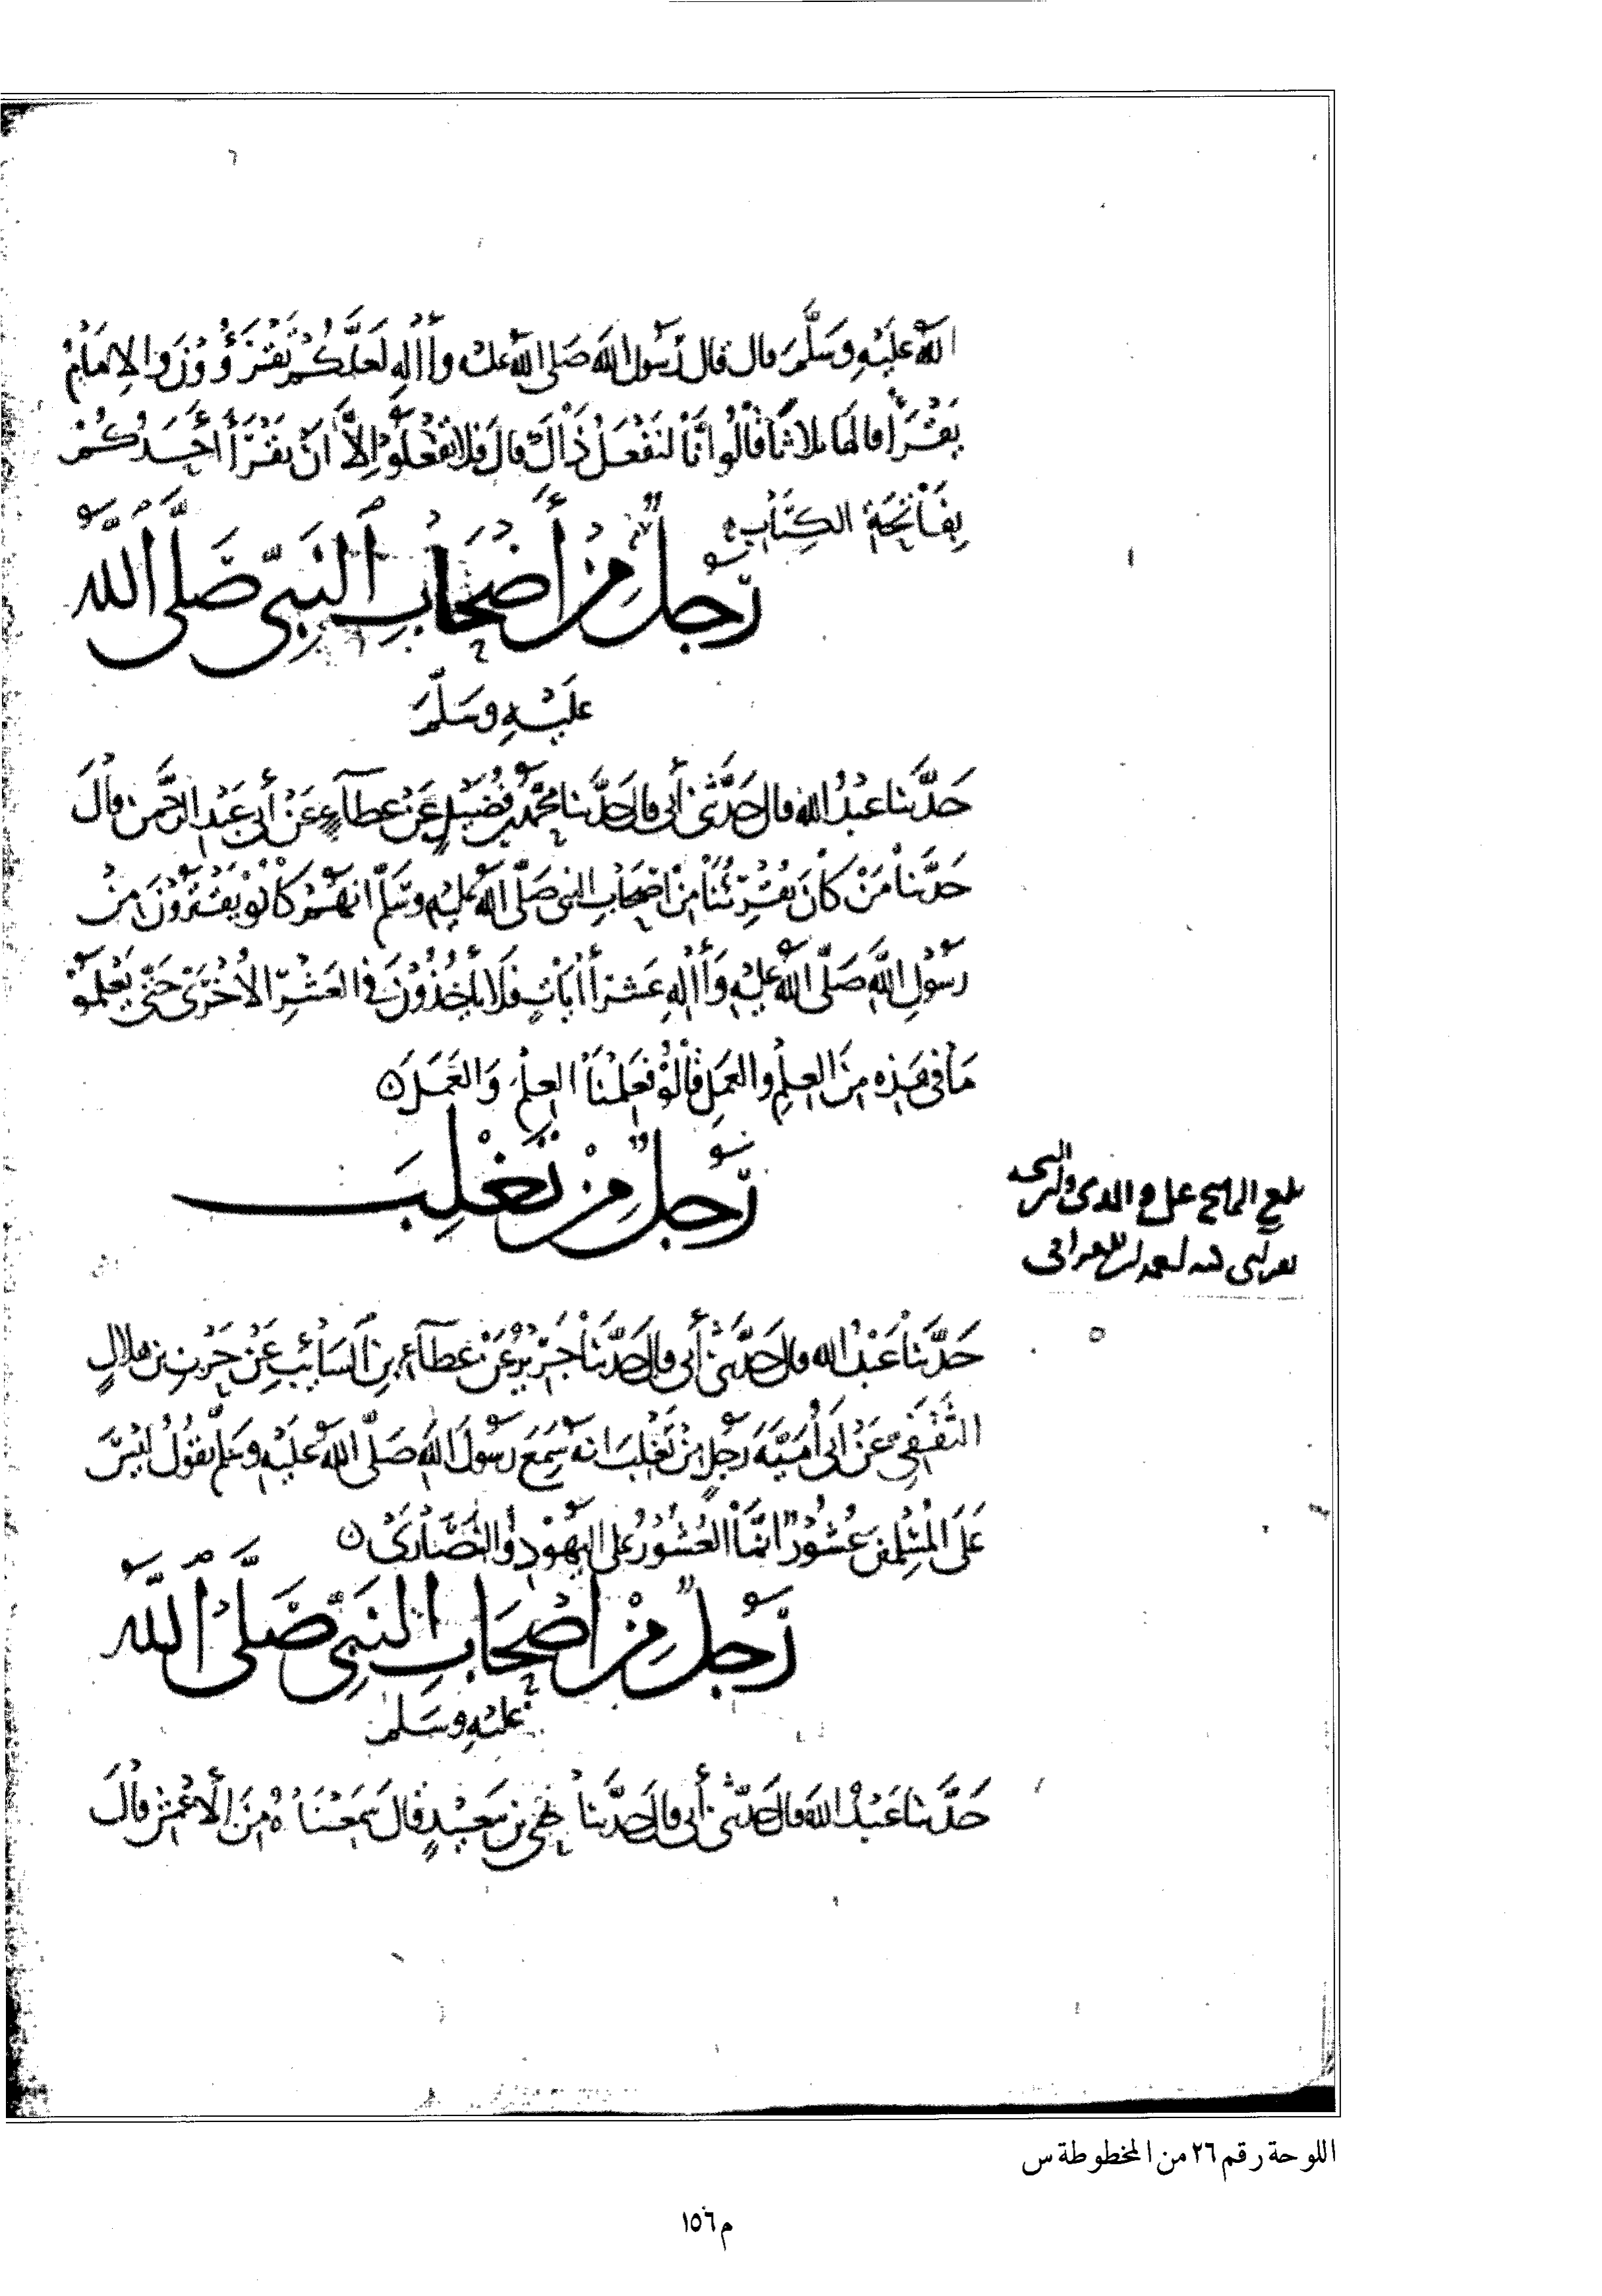 الله عَلَيْهِ وَسَلَّمَ قال قال رَسُول الله صَلى الله عليه وآله لَعَلَّكُمْ تَقْرَؤُونَ والإمَامُ
يَقْرَأ قالها ثلاثًا قَالُوا إنَّا لنَفْعَلُ ذَاكَ قال فَلا تَفْعَلُوا إلَّا أنْ يَقْرَأ أحَدُكُمْ
بِفَاتِحَةِ الكِتَابِ
رَجُلٌ مِنْ أَصْحَابِ النَّبِيّ صَلَّى الله
عَلَيْهِ وَسَلَّمَ
حَدَّثَنا عَبْدُ الله قال حَدَّثَنِي أبي قال حَدَّثنا محمّد بن فُضَيْلٍ عَنْ عطآءٍ عَنْ أبي عَبْدِ الرّحمن قالَ
حَدَّثنا مَنْ كانَ يُقْرِئُنَا مِنْ أصْحَابِ النبي صَلَّى الله عليه وسَلّم انّهُمْ كَانُوْ يَقْتَرِؤُنَ مِنْ
رَسُولِ اللهِ صَلَّى الله عليهِ وَآلهِ عَشْرَ آيَاتٍ فَلَا يَأخُذُوْنَ فِي العَشْرِ الأُخْرَى حَتّى يَعْلَمُوْ
مَا فِي هَذِه مِنَ العِلْمِ والعَمَلِ قَالُوْ فعَلِمْنَا العِلْمَ وَالعَمَلَ ه
رَجُلٌ مِنْ تَغْلِبَ
بلغ
حَدَّثَنَا عَبْدُ الله قال حَدَّثَنِي أبي قال حَدَّثَنَا جَرِيْرٌ عَنْ عَطآءِ بنِ السَّائِبِ عَنْ حَرْبِ بن هلالٍ
الثَّقَفِي عَنْ أبي أُمَيَّةَ رَجُلٍ مِنْ تَغْلِبَ انه سَمِعَ رَسُولَ اللهِ صَلَّى الله عَلَيْهِ وسَلّم يقُولُ لَيْسَ
عَلَى المُسْلِمِينَ عُشُوْرٌ انَّمَا العُشُوْرُ على اليَهُوْدِ والنَّصَارَى ه
رَجُلٌ مِنْ اصْحَابِ النَّبِيّ صَلَّى الله
عليْهِ وسَلم
حَدَّثنا عَبْدُ الله قال حَدَّثَنِي أبي قال حَدَّثنا يحيى بن سَعِيْدٍ قَالَ سَمِعْنَاهُ مِنَ الأعْمَشِ قالَ
اللوحة رقم ٢٦ من المخطوطة س
م ١٥٦